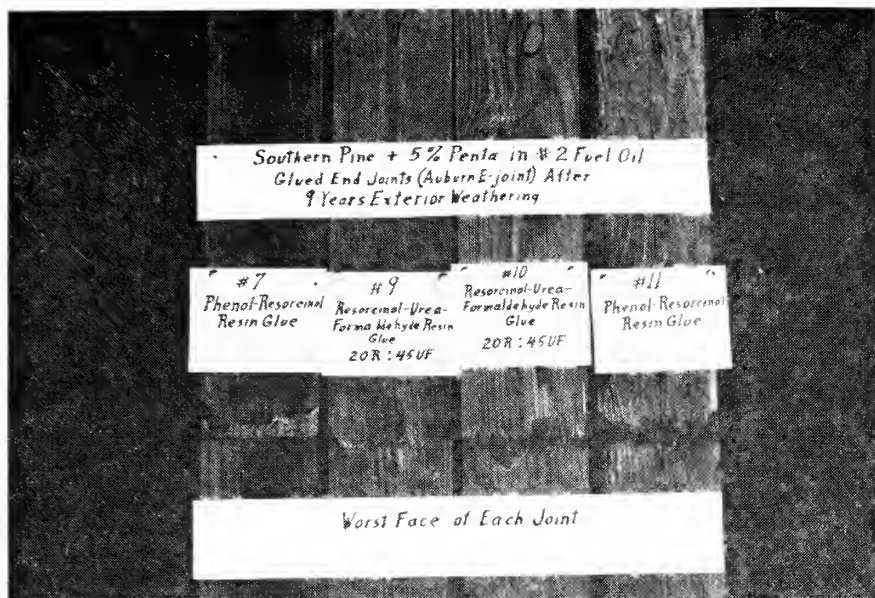 10
Southern Pine + 5% Penta in #2 Fuel Oil
Glued End Joints (Auburn E-joint) After
9 Years Exterior Weathering
#7
Phenol-Resorcinol
Resin Glue
#9
Resorcinol-Urea-
Formaldehyde Resin
Glue
20R : 45UF
#10
Resorcinol-Urea-
Formaldehyde Resin
Glue
20R : 45UF
#11
Phenol-Resorcinol
Resin Glue
Worst Face of Each Joint